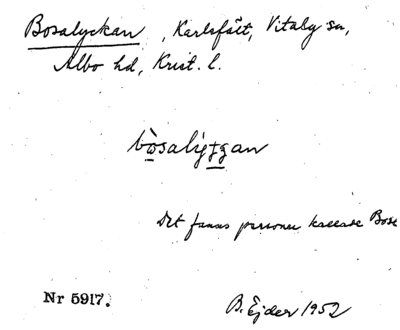 Bosalyckan, Karlsfält, Vitaby sn,
Albo hd, Krist. l.
bòsalyckan
Det fanns personer kallade Bose
Nr 5917.
B. Ejder 1952